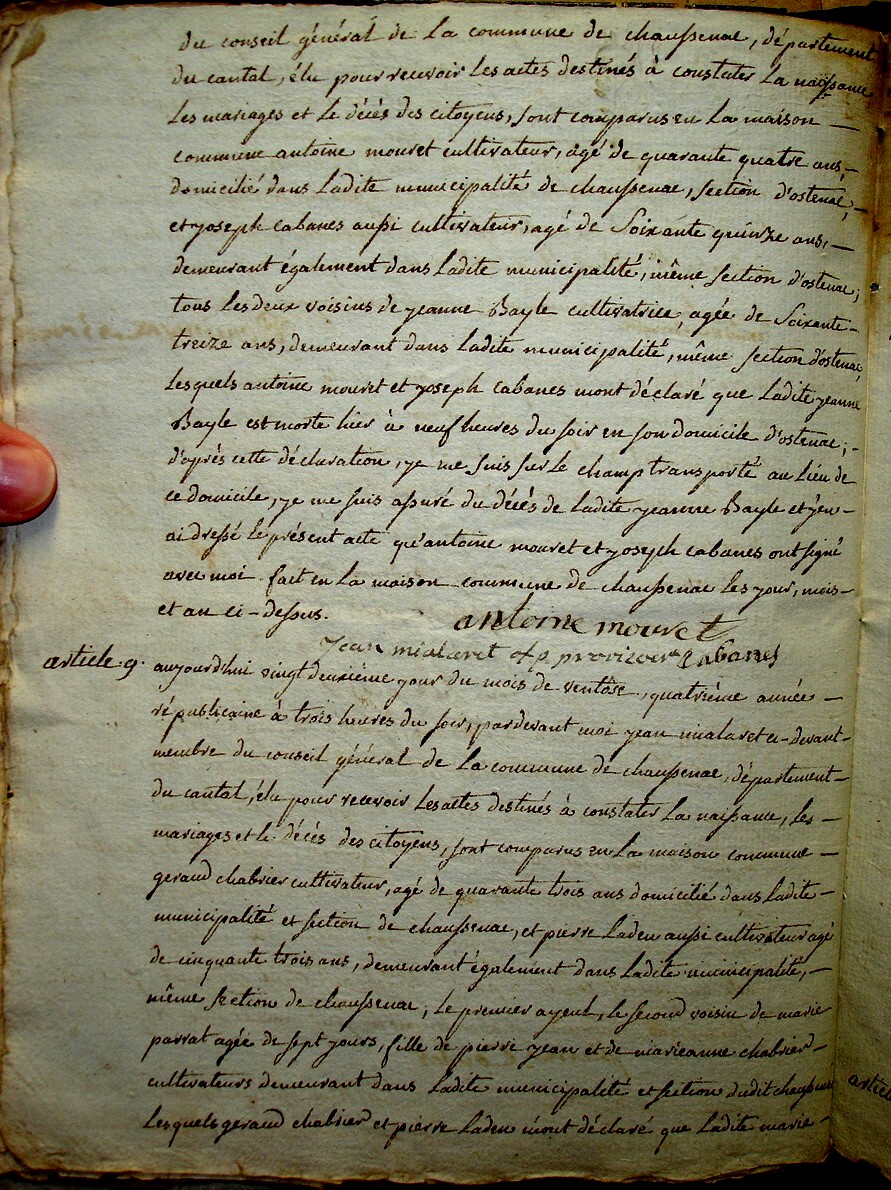 du conseil général de la commune de chaussenac, département
du cantal, élu pour recevoir les actes destinés à constater la naissance
les mariages et le décès des citoyens, sont comparus en la maison —
commune antoine mouret cultivateur, agé de quarante quatre ans, —
domicilié dans ladite municipalité de chaussenac, section d'ostenac, —
et joseph cabanes aussi cultivateur, agé de soixante quinze ans, —
demeurant également dans ladite municipalité, même section d'ostenac;
tous les deux voisins de jeanne Bayle cultivatrice, agée de soixante-
treize ans, demeurant dans ladite municipalité, même section d'ostenac,
lesquels antoine mouret et joseph cabanes mont déclaré que ladite jeanne
Bayle est morte hier à neuf heures du soir en son domicile d'ostenac; -
d'après cette déclaration, je me suis sur le champ transporté au lieu de
ce domicile, je me suis assuré du décés de ladite jeanne Bayle et j'en -
ai dressé le présent acte qu'antoine mouret et joseph cabanes ont signé
avec moi. fait en la maison commune de chaussenac les jour, mois -
et an ci-dessus.
antoine mouret
jean mialaret cabanes
article 9. aujourd'hui vingt deuxième jour du mois de ventôse, quatrième année —
républicaine à trois heures du soir, pardevant moi jean mialaret ci-devant -
membre du conseil général de la commune de chaussenac, département -
du cantal, élu pour recevoir les actes destinés à constater la naissance, les —
mariages et le décés des citoyens, sont comparus en la maison commune —
geraud chabrier cultivateur, agé de quarante trois ans domicilié dans ladite -
municipalité et section de chaussenac, et pierre Laden aussi cultivateur agé
de cinquante trois ans, demeurant également dans ladite municipalité, —
même section de chaussenac; le premier ayeul, le second voisin de marie
parrat agée de sept jours, fille de pierre jean et de marieanne chabrier -
cultivateurs demeurant dans ladite municipalité et section dudit chaussenac
lesquels geraud chabrier et pierre Laden m'ont déclaré que ladite marie -